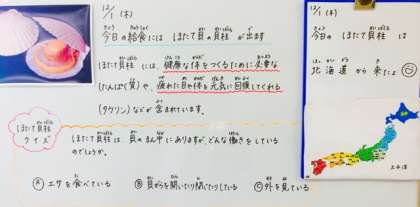 12/1(木)
今日の給食には ほたて貝の貝柱 が出ます
ほたて貝柱 には、健康な体をつくるために必要な
(たんぱく質) や、疲れた目や体を元気に回復してくれる
(タウリン) などが 含まれています。
ほたて貝柱
クイズ
ほたて貝柱は、貝のまん中にありますが、どんな働きをしている
のでしょうか。
Ⓐ エサを食べている
Ⓑ 貝がらを開いたり閉じたりしている
Ⓒ 外を見ている
12/1(木)
今日の ほたて貝柱 は
北海道 から 来たよ
太平洋